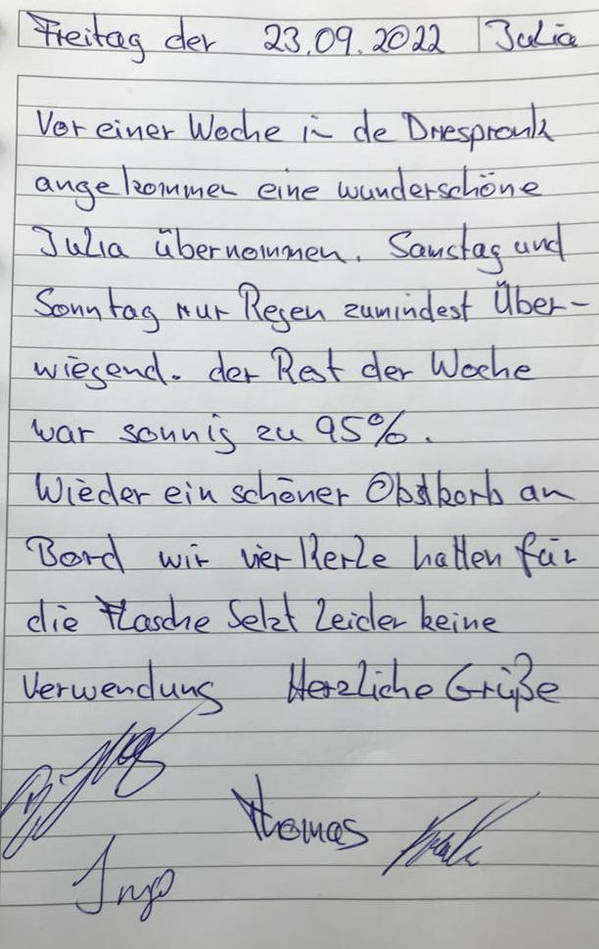 Freitag der 23.09.2022 Julia
Vor einer Woche in de Driesprenk
angekommen eine wunderschöne
Julia übernommen. Samstag und
Sonntag nur Regen zumindest Über-
wiegend. der Rest der Woche
war sonnig zu 95%.
Wieder ein schöner Obstkorb an
Bord wir vier Kerle hatten für
die Flasche Sekt leider keine
Verwendung Herzliche Grüße
Thomas
Ingo